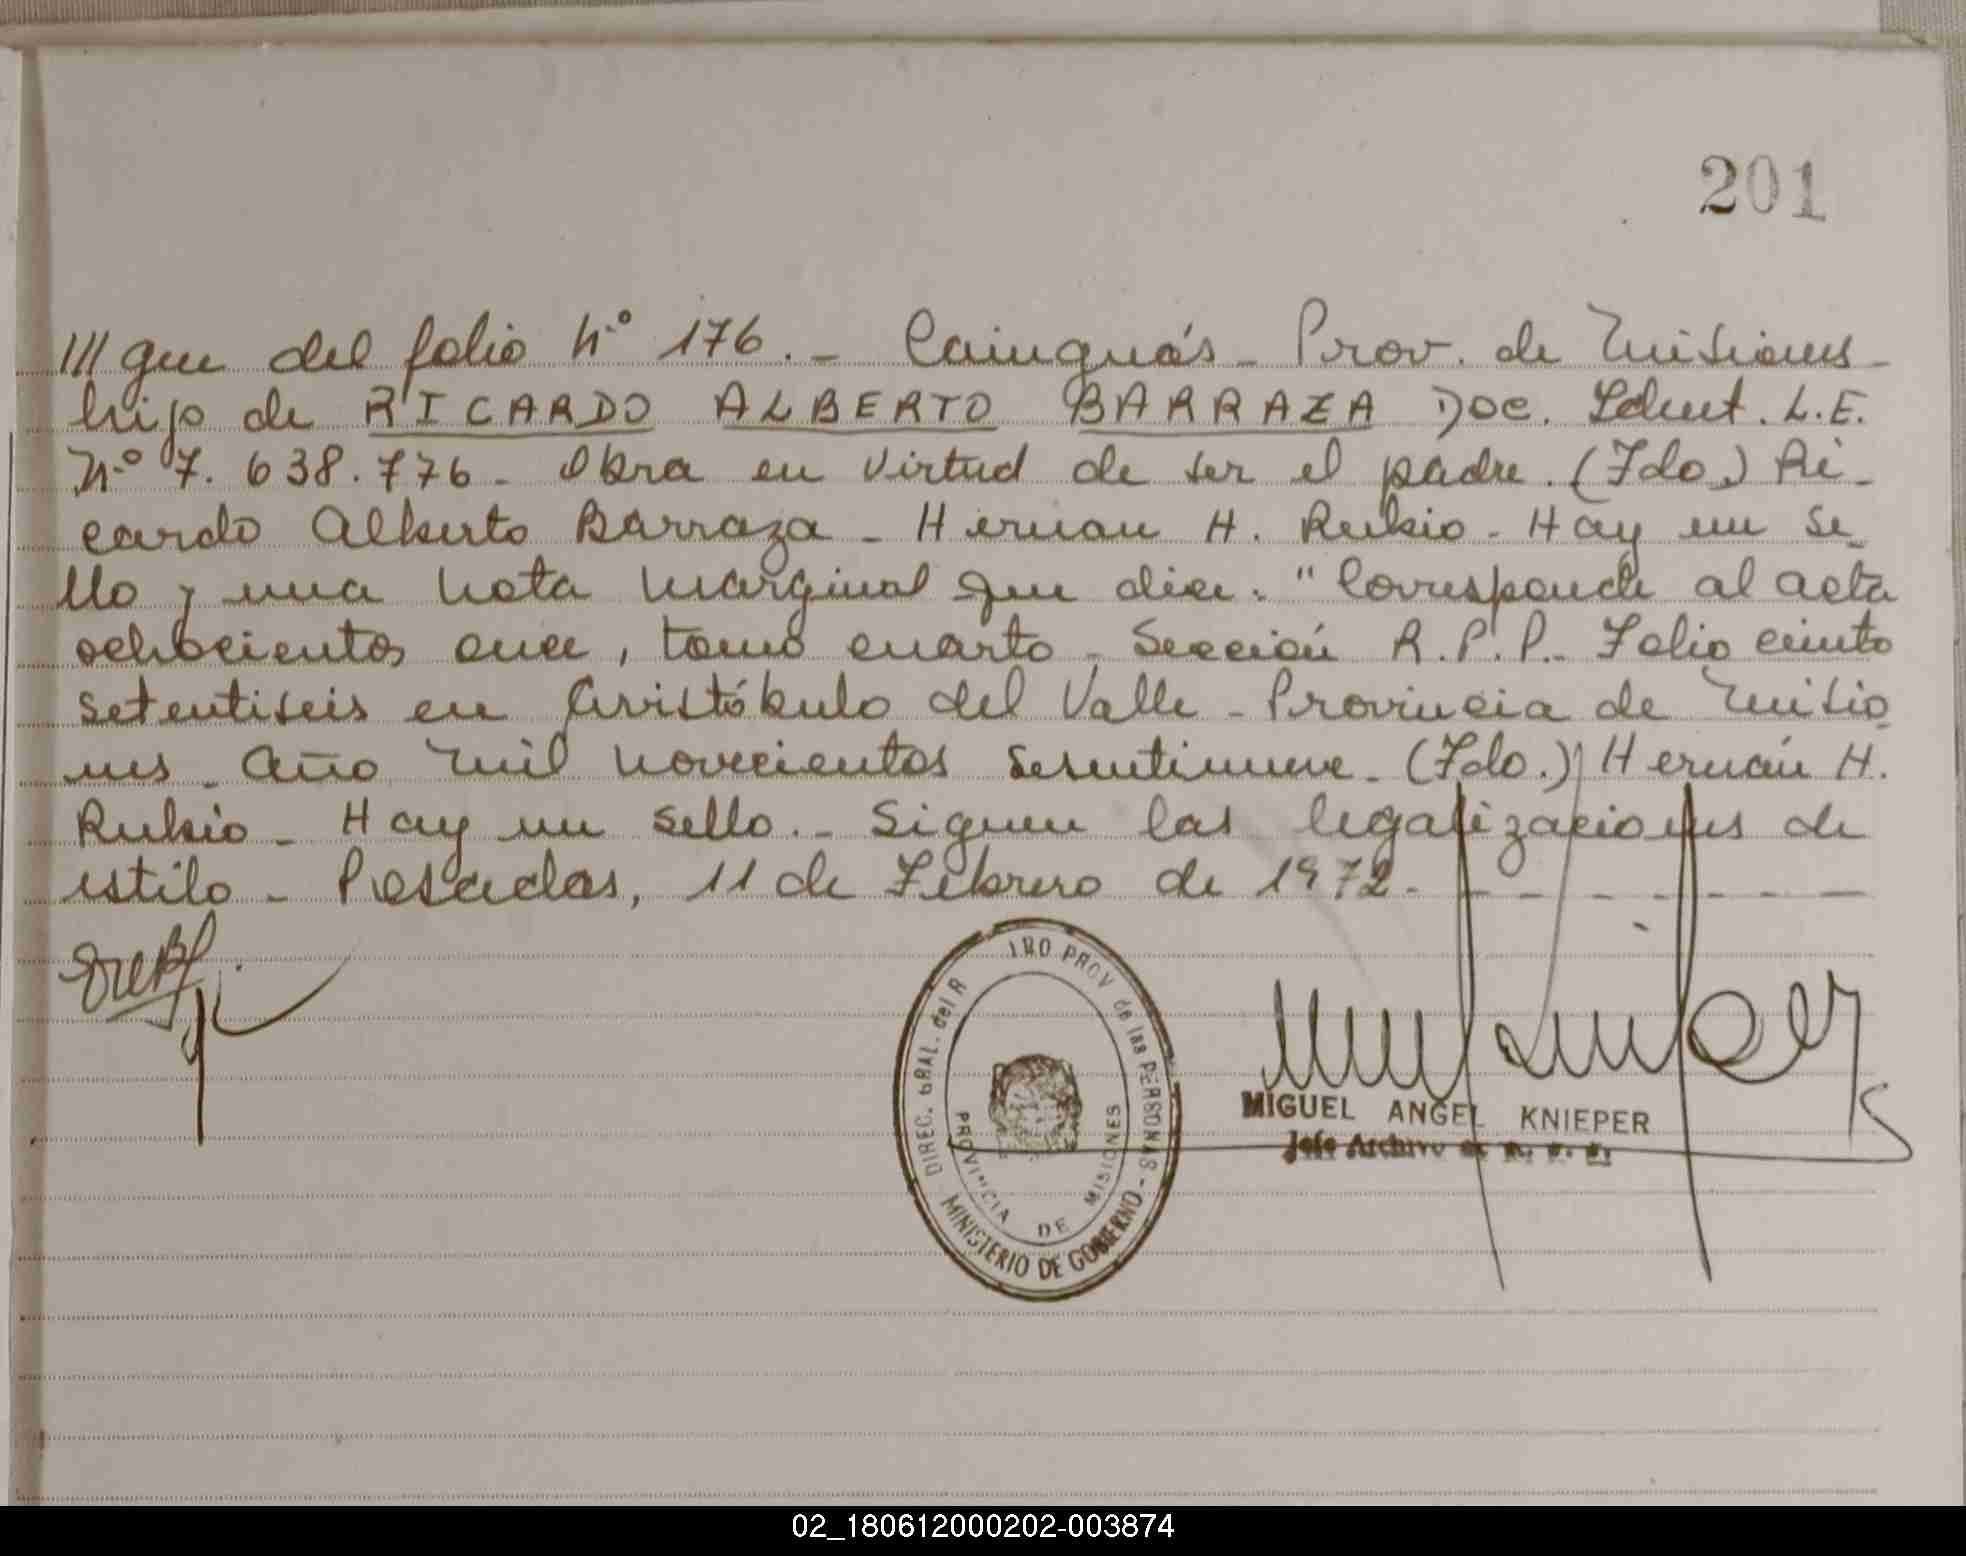 201
/// gue del folio N.º 176. - Cainguás - Prov. de Misiones -
hijo de RICARDO ALBERTO BARRAZA Doc. Ident. L.E.
N.º 7.638.776 - Obra en virtud de ser el padre. (Fdo.) Ri-
cardo Alberto Barraza - Hernan H. Rubio - Hay un se-
llo y una nota marginal que dice: "Corresponde al acta
ochocientos once, tomo cuarto - Sección R.P.P. - Folio ciento
setentiseis en Aristóbulo del Valle - Provincia de Misio-
nes - Año mil novecientos sesentinueve - (Fdo.) Hernán H.
Rubio - Hay un sello. - Siguen las legalizaciones de
estilo - Posadas, 11 de Febrero de 1972. - - - - - - -
DIREC. GRAL. del R TRO PROV de las PERSONAS - MINISTERIO DE GOBIERNO -
PROVINCIA DE MISIONES
MIGUEL ANGEL KNIEPER
Jefe Archivo
02_180612000202-003874